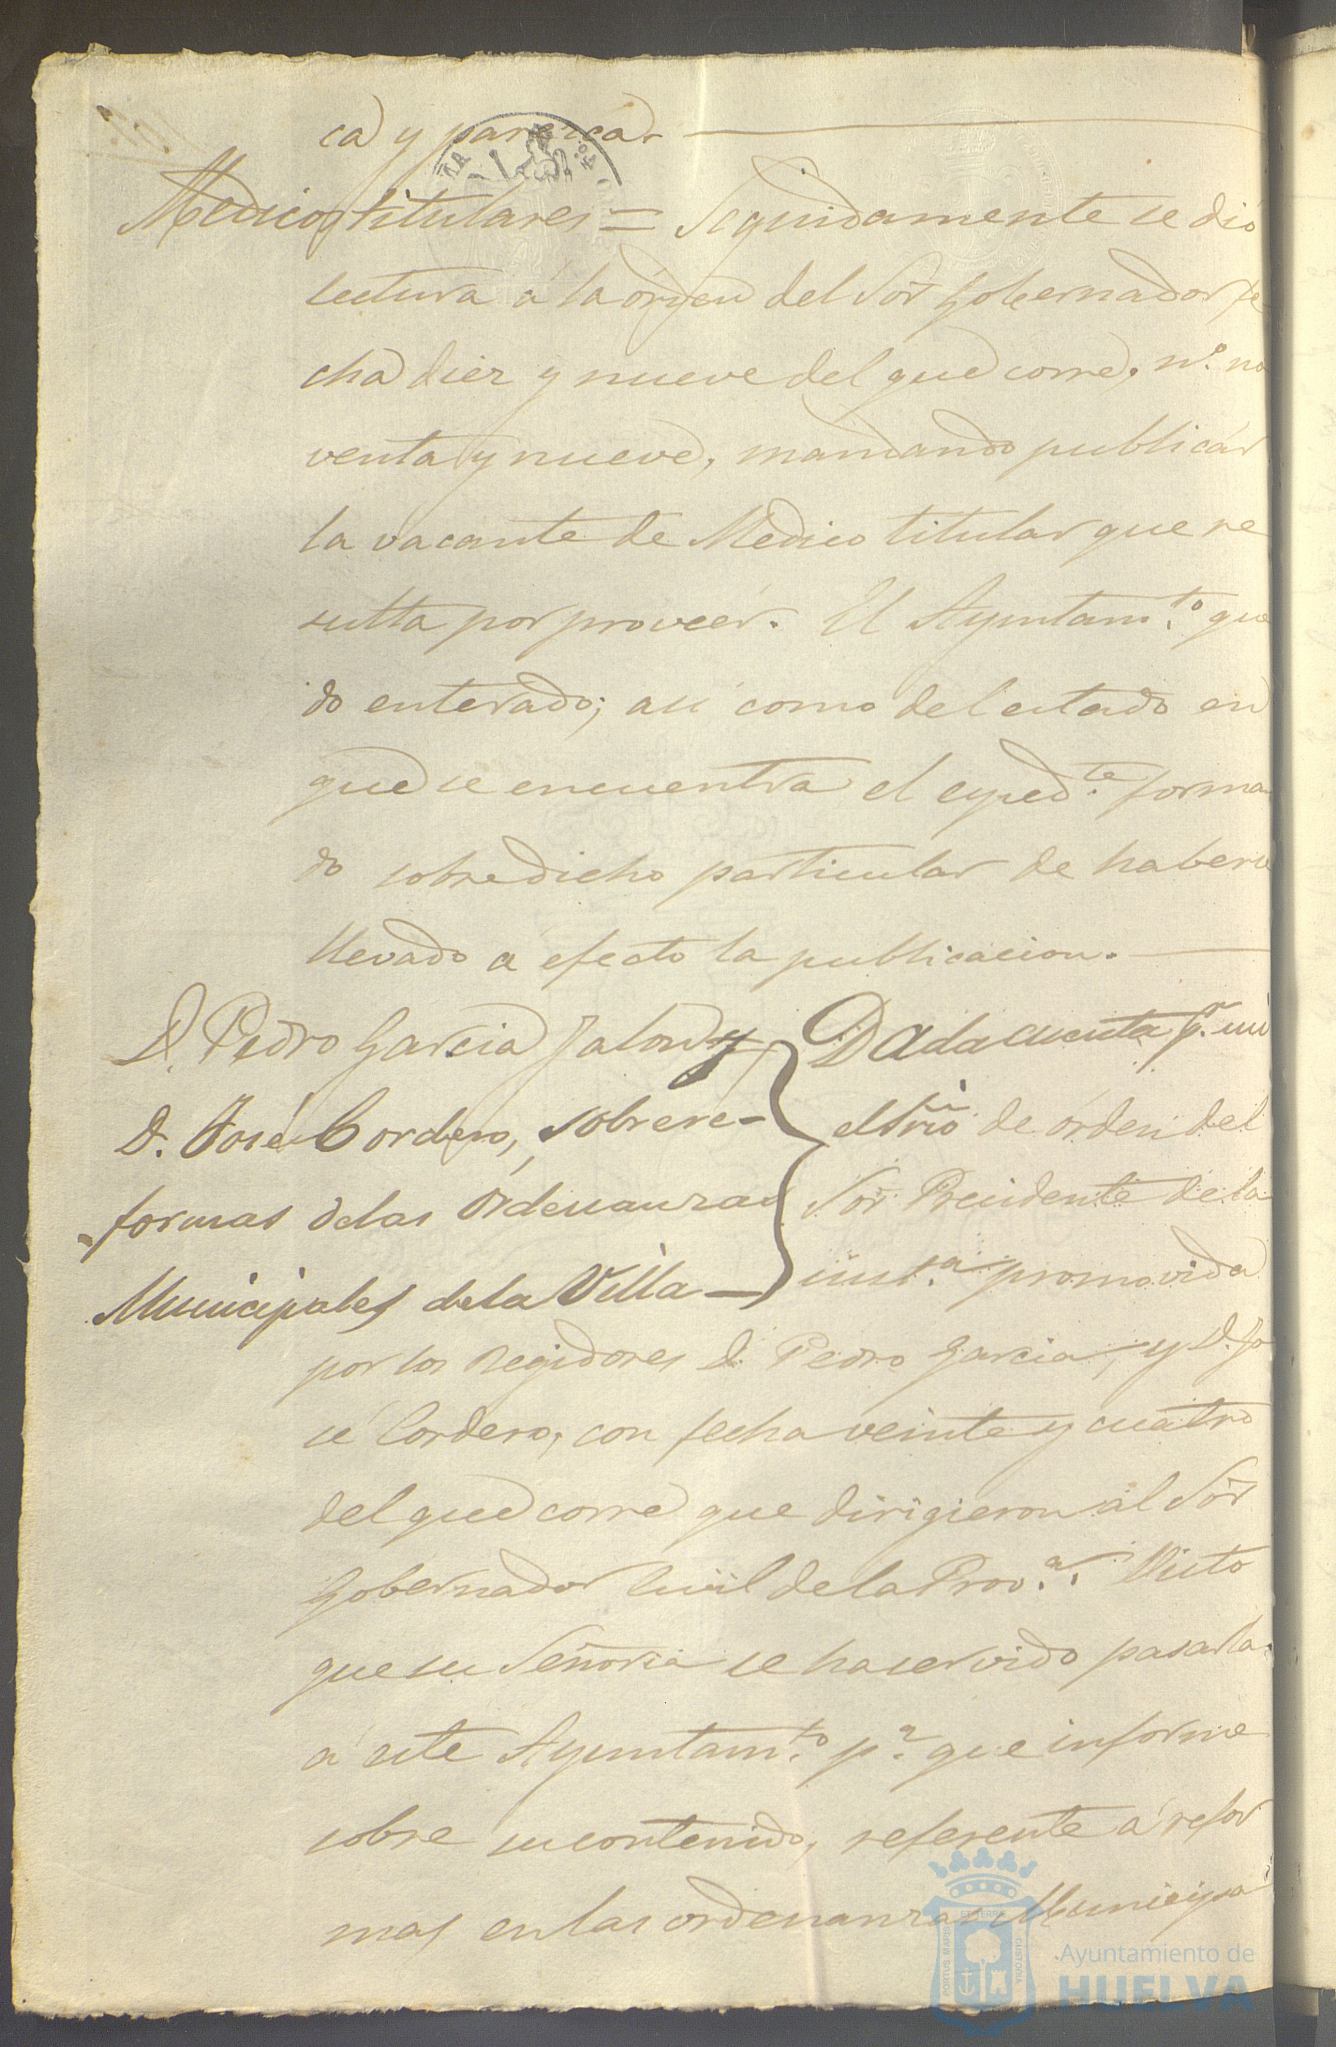 ca y parcica.
Medicos titulares = Seguidamente se dió
lectura á la órden del Sor Gobernador fe
cha diez y nueve del que corre, n.º no
venta y nueve, mandando publicar
la vacante de Medico titular que re
sulta por proveer. El Ayuntam.to que
do enterado; asi como del estado en
que se encuentra el exped.te forma
do sobre dicho particular de haberse
llevado a efecto la publicacion.
D. Pedro Garcia Jalon y
D. José Cordero, sobre re-
formas de las Ordenanzas
Municipales de la Villa
Dada cuenta p.r mi
el Srio de orden del
Sor Presidente de la
inst.a promovida
por los Regidores D. Pedro Garcia, y D. Jo
sé Cordero, con fecha veinte y cuatro
del que corre que dirigieron al Sor
Gobernador Civil de la Prov.a. Visto
que su Señoria se ha servido pasarla
á este Ayuntam.to p.a que informe
sobre su contenido, referente á refor
mas en las ordenanzas Municipa
Ayuntamiento de
HUELVA
PORTUS MARIS
ET TERRE
CUSTODIA